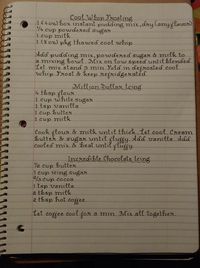 Cool Whip Frosting
1 (4 oz) box instant pudding mix, dry (any flavor)
1/4 cup powdered sugar
1 cup milk
1 (8 oz) pkg thawed cool whip
Add pudding mix, powdered sugar & milk to
a mixing bowl. Mix on low speed until blended
Let mix stand 3 min. Fold in defrosted cool
whip. Frost & keep refridgerated.
Million Dollar Icing
4 tbsp flour
1 cup white sugar
1 tsp vanilla
1 cup butter
1 cup milk
Cook flour & milk until thick. Let cool. Cream
butter & sugar until fluffy. Add vanilla. Add
cooled mix & beat until fluffy
Incredible Chocolate Icing
cup butter
cup icing sugar
cup cocoa
1 tsp vanilla
2 tbsp milk
2 tbsp hot coffee
Let coffee cool for a min. Mix all together.